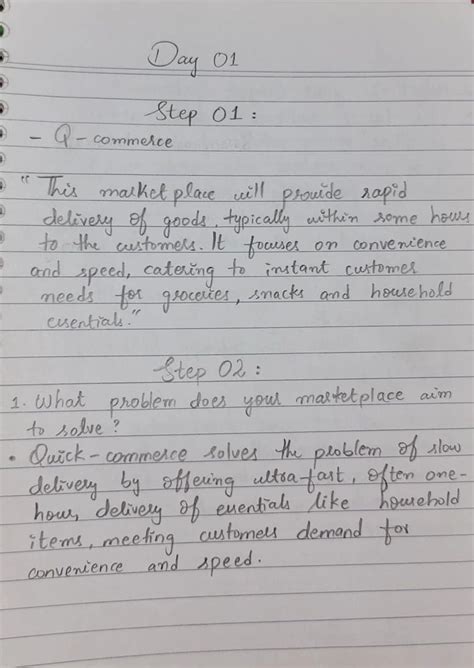 Day 01
Step 01 :
- Q - commerce
" This market place will provide rapid
delivery of goods, typically within some hours
to the customers. It focuses on convenience
and speed, catering to instant customer
needs for groceries, snacks and household
essentials."
Step 02 :
1. What problem does your marketplace aim
to solve ?
• Quick - commerce solves the problem of slow
delivery by offering ultra-fast, often one-
hour, delivery of essentials like household
items, meeting customers demand for
convenience and speed.